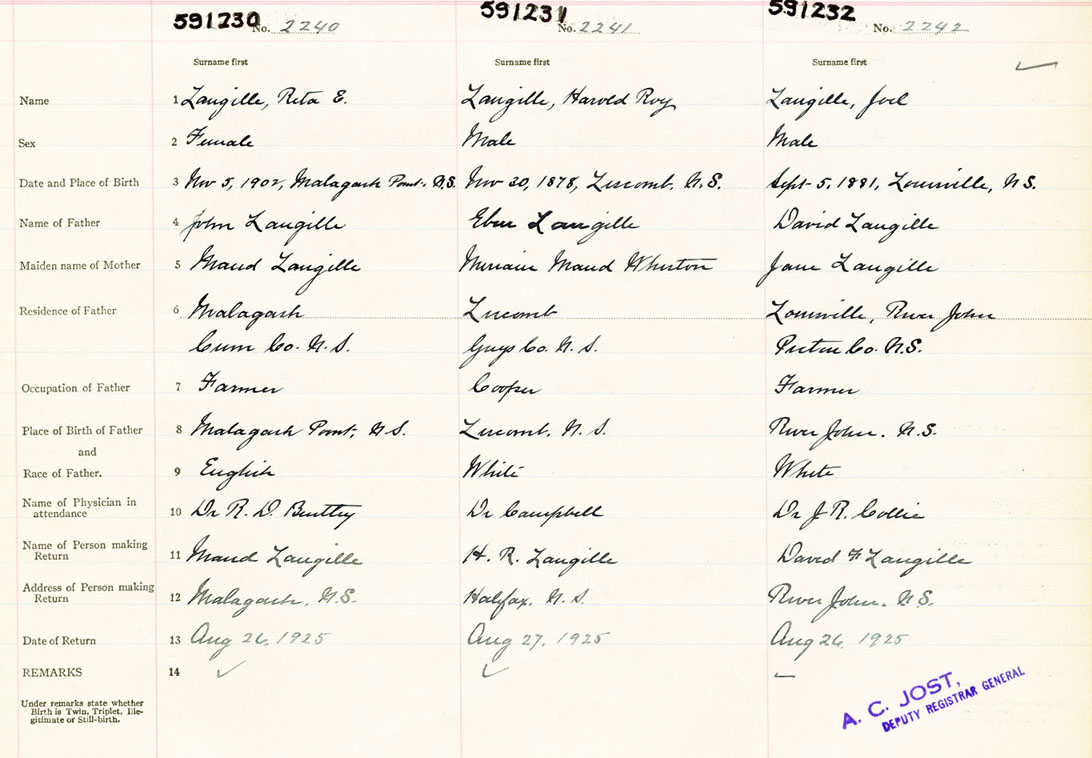 591230 No. 2240 591231 No. 2241 591232 No. 2242
Surname first Surname first Surname first
Name 1 Langille, Reta E. Langille, Harold Roy Langille, Joel
Sex 2 Female Male Male
Date and Place of Birth 3 Nov 5, 1902, Malagash Point. N.S. Nov 30, 1878, Liscomb. N.S. Sept 5, 1881, Louisville, N.S.
Name of Father 4 John Langille Eber Langille David Langille
Maiden name of Mother 5 Maud Langille Maud Langille
Residence of Father 6 Malagash Liscomb Louisville, River John
Cum Co. N.S. Guys Co. N.S. Pictou Co. N.S.
Occupation of Father 7 Farmer Cooper Farmer
Place of Birth of Father 8 Malagash Point, N.S. Liscomb. N.S. River John. N.S.
and
Race of Father. 9 English White White
Name of Physician in
attendance 10 Dr R. D. Dr Campbell Dr J R. Collie
Name of Person making
Return 11 Maud Langille H. R. Langille David F Langille
Address of Person making
Return 12 Malagash. N.S. Halifax. N.S. River John. N.S.
Date of Return 13 Aug 26, 1925 Aug 27, 1925 Aug 26, 1925
REMARKS 14
Under remarks state whether
Birth is Twin, Triplet, Ille-
gitimate or Still-birth.
A. C. JOST,
DEPUTY REGISTRAR GENERAL